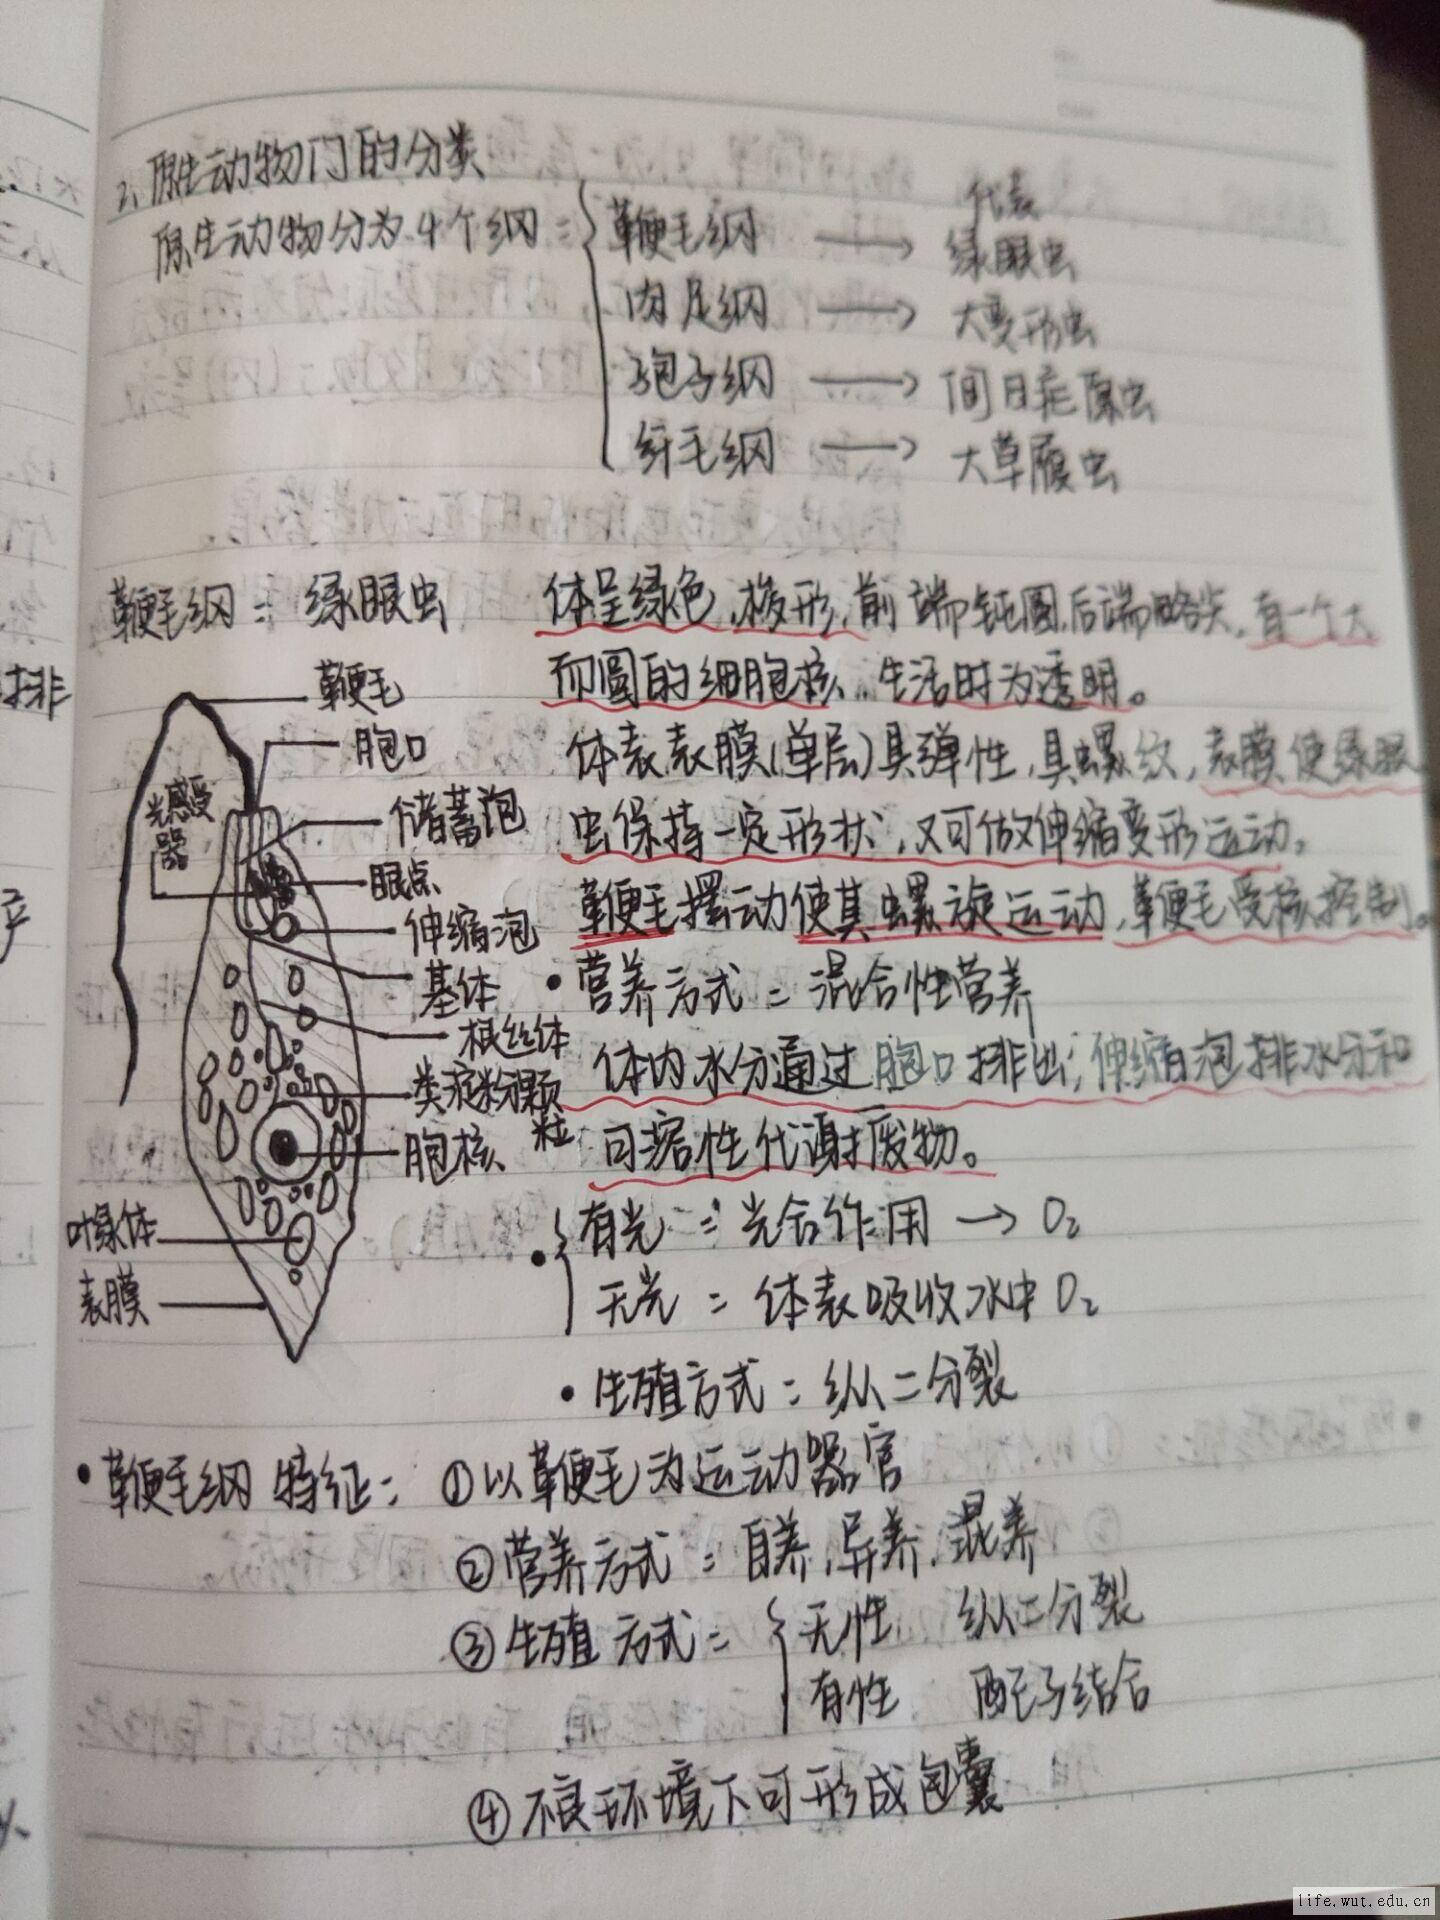 2、原生动物门的分类
代表
原生动物分为4个纲： 鞭毛纲 → 绿眼虫
肉足纲 → 大变形虫
孢子纲 → 间日疟原虫
纤毛纲 → 大草履虫
鞭毛纲： 绿眼虫 体呈绿色，梭形，前端钝圆，后端略尖，有一个大
而圆的细胞核，生活时为透明。
鞭毛
胞口
体表表膜(单层)具弹性，具螺纹，表膜使绿眼
光感受器
储蓄泡
虫保持一定形状，又可做伸缩变形运动。
眼点
鞭毛摆动使其螺旋运动，鞭毛受核控制。
伸缩泡
基体
•营养方式：混合性营养
根丝体
体内水分通过胞口排出；伸缩泡排水分和
类淀粉颗粒
胞核
可溶性代谢废物。
叶绿体
•有光：光合作用 → O₂
表膜
无光：体表吸收水中O₂
•生殖方式：纵二分裂
•鞭毛纲特征： ①以鞭毛为运动器官
②营养方式：自养，异养，混养
③生殖方式： 无性 纵二分裂
有性 配子结合
④不良环境下可形成包囊
排
life.wut.edu.cn